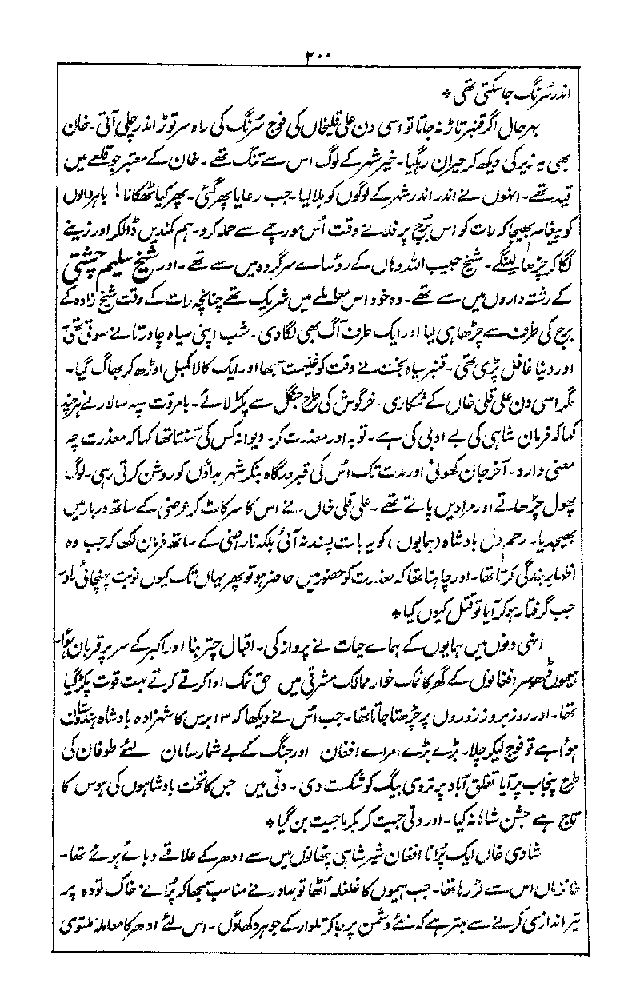 ۲۰۰
اندر سُرنگ جا سکتی تھی *
بہرحال اگر قنبر تاڑ نہ جاتا تو اسی دن علی قلیخاں کی فوج سُرنگ کی راہ سر توڑ اندر چلی آتی۔ خان
بھی یہ تدبیر کی دیکھ کر حیران رہگیا۔ خیر شہر کے لوگ اس سے تنگ تھے۔ خان کے معتبر جو قلعے میں
قید تھے۔ انہوں نے اندر اندر شہر کے لوگوں کو بلا لیا۔ جب رعایا پھر گئی۔ پھر کیا ٹھکانا! باہر والوں
کو پیغام بھیجا کہ رات کو اس برج پر فلانے وقت اُس مورچے سے حملہ کرو۔ ہم کمندیں ڈالکر اور زینے
لگا کر چڑھا لینگے۔ شیخ حبیب اللہ وہاں کے رؤسا سے سرگروہ میں سے تھے۔ اور شیخ سلیم چشتی
کے رشتہ داروں میں سے تھے۔ وہ خود اس معاملے میں شریک تھے چنانچہ رات کے وقت شیخ زادہ کے
برج کی طرف سے چڑھا ہی لیا اور ایک طرف آگ بھی لگا دی۔ شب اپنی سیاہ چادر تانے سوتی تھی
اور دنیا غافل پڑی تھی۔ قنبر سیاہ بخت نے وقت کو غنیمت سمجھا اور ایک کالا کمبل اوڑھ کر بھاگ گیا۔
مگر اسی دن علی قلی خاں کے شکاری۔ خرگوش کی طرح جنگل سے پکڑ لائے۔ بامروت سپہ سالار نے ہرچند
کہا کہ فرمان شاہی کی بے ادبی کی ہے۔ توبہ اور معذرت کر۔ دیوانہ کس کی سنتا تھا کہا کہ معذرت چہ
معنی دارد۔ آخر جان کھوئی اور مدت تک اُس کی قبر درگاہ بنکر شہر بداؤں کو روشن کرتی رہی۔ لوگ
پھول چڑھاتے اور مرادیں پاتے تھے۔ علی قلی خاں۔ نے اس کا سر کاٹ کر عرضی کے ساتھ دربار میں
بھیجدیا۔ رحم دل بادشاہ (ہمایوں) کو یہ بات پسند نہ آئی بلکہ ناراضی کے ساتھ فرمان لکھا کہ جب وہ
اظہار بندگی کرتا تھا۔ اور چاہتا تھا کہ معذرت کو حضور میں حاضر ہو تو پھر یہاں تک کیوں نوبت پہنچائی اور
جب گرفتار ہو کر آیا تو قتل کیوں کیا *
انہی دنوں میں ہمایوں کے ہماے حیات نے پرواز کی۔ اقبال چتر بنا اور اکبر کے سر پر قربان ہوا
ہیموں ڈھوسر افغانوں کے گھر کا نمک خوار ممالک مشرقی میں حق نمک ادا کرتے کرتے بہت قوت پکڑ گیا
تھا۔ اور روز بروز زوروں پر چڑھتا جاتا تھا۔ جب اُس نے دیکھا کہ ۱۳ برس کا شہزادہ بادشاہ ہندوستان
ہوا ہے تو فوج لیکر چلا۔ بڑے بڑے امراے افغان اور جنگ کے بے شمار سامان لئے طوفان کی
طرح پنجاب پر آیا تغلق آباد پر تردی بیگ کو شکست دی۔ دلی میں جس کا تخت بادشاہوں کی ہوس کا
تاج ہے جشن شاہانہ کیا۔ اور دلی جیت کر بکرماجیت بن گیا *
شادی خاں ایک پُرانا افغان شیر شاہی پٹھانوں میں سے ادھر کے علاقے دبائے ہوئے تھا۔
خانزماں اس سے لڑ رہا تھا۔ جب ہیموں کا غلغلہ اُٹھا تو بہادر نے مناسب سمجھا کہ پُرانے خاک تودہ پر
تیر اندازی کرنے سے بہتر ہے کہ نئے دشمن پر جا کر تلوار کے جوہر دکھاؤں۔ اس لئے ادھر کا معاملہ ملتوی